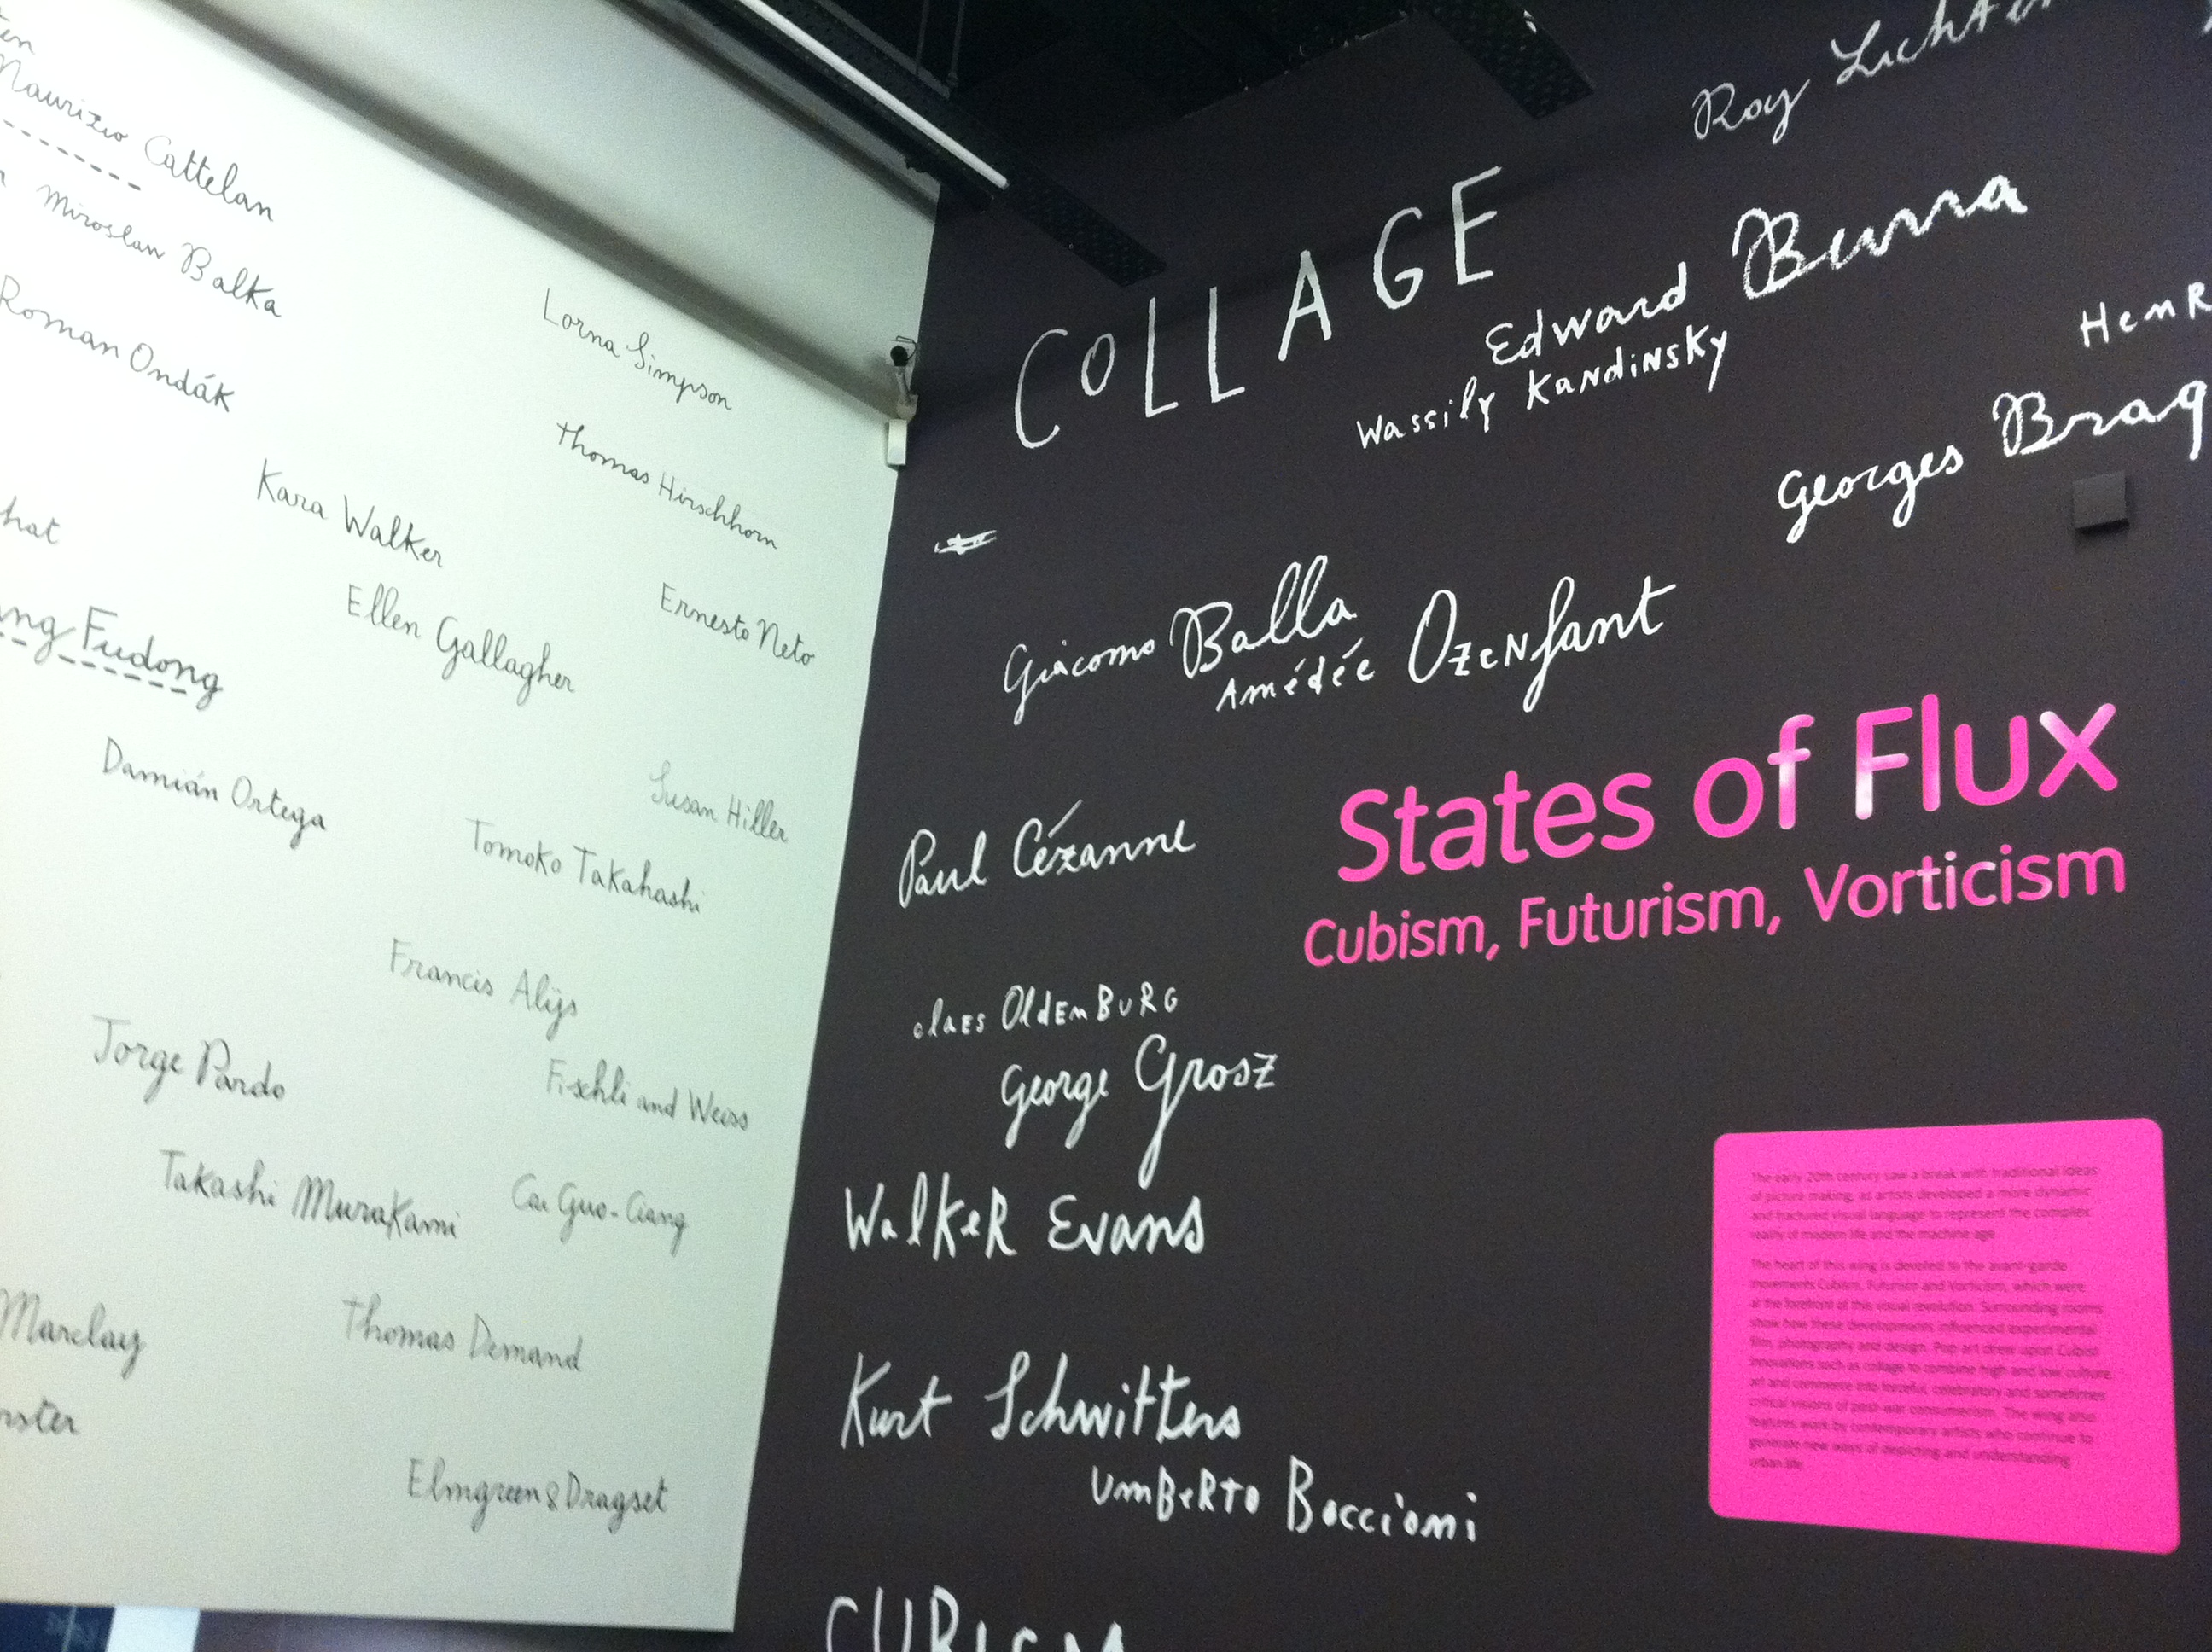 Maurizio Cattelan
Miroslaw Balka
Roman Ondák
Lorna Simpson
Thomas Hirschhorn
Kara Walker
Ernesto Neto
Ellen Gallagher
Fudong
Damián Ortega
Susan Hiller
Tomoko Takahashi
Francis Alÿs
Jorge Pardo
Fischli and Weiss
Takashi Murakami
Cai Guo-Qiang
Marclay
Thomas Demand
Elmgreen & Dragset
Roy
COLLAGE
Edward Burra
Wassily Kandinsky
Georges
Giacomo Balla
Amédée Ozenfant
States of Flux
Cubism, Futurism, Vorticism
Paul Cézanne
claes OldEnBURG
George Grosz
WalkeR Evans
Kurt Schwitters
UmBeRto Boccioni
CUBISM
The early 20th century saw a break with traditional ideas
of picture making, as artists developed a more dynamic
and fractured visual language to represent the complex
reality of modern life and the machine age.
The heart of this wing is devoted to the avant-garde
movements Cubism, Futurism and Vorticism, which were
at the forefront of this visual revolution. Surrounding rooms
show how these developments influenced experimental
film, photography and design. Pop art drew upon Cubist
innovations such as collage to combine high and low culture,
art and commerce into forceful, celebratory and sometimes
critical visions of post-war consumerism. The wing also
features work by contemporary artists who continue to
generate new ways of depicting and understanding
urban life.